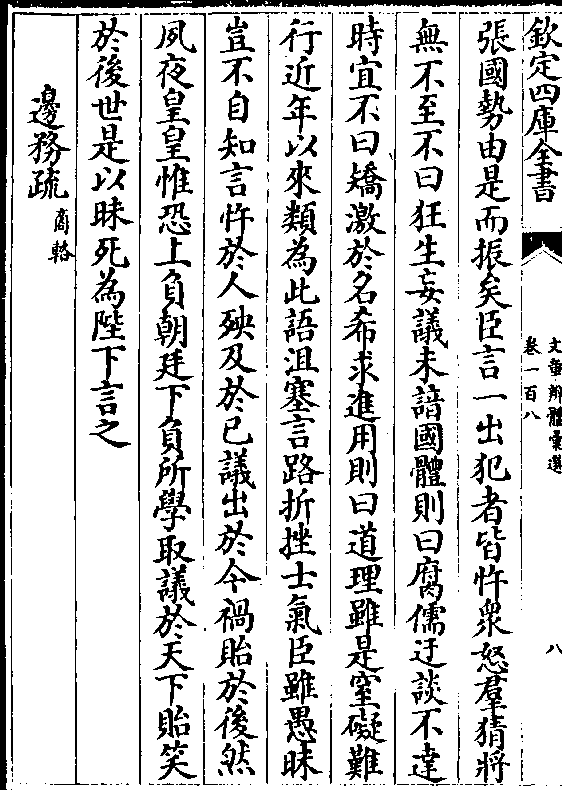 欽定四庫全書
文章辨體彙選
卷一百八
八
張國勢由是而振矣臣言一出犯者皆忤衆怒羣猜將
無不至不曰狂生妄議未諳國體則曰腐儒迂談不達
時宜不曰矯激於名希求進用則曰道理雖是窒礙難
行近年以來類為此語沮塞言路折挫士氣臣雖愚昧
豈不自知言忤於人殃及於已議出於今禍貽於後然
夙夜皇皇惟恐上負朝廷下負所學取議於天下貽笑
於後世是以昧死為陛下言之
邊務疏商輅